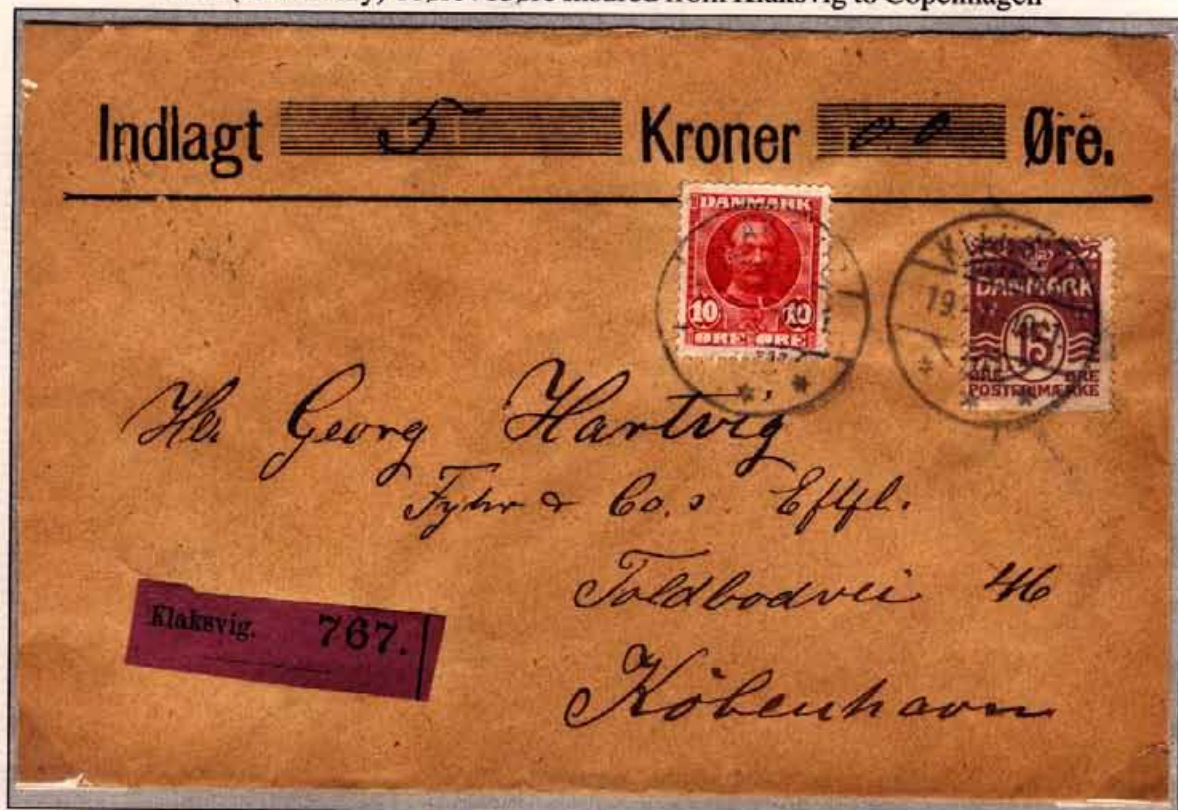 insured from Klaksvig to Copenhagen
Indlagt 5 Kroner 00 Øre.
DANMARK
10 10
ØRE ØRE
DANMARK
15
ØRE ØRE
POSTFRIMÆRKE
19
Hr. Georg Hartvig
Fyhr & Co.s Eftfl.
Toldbodvei 46
Klaksvig. 767.
København